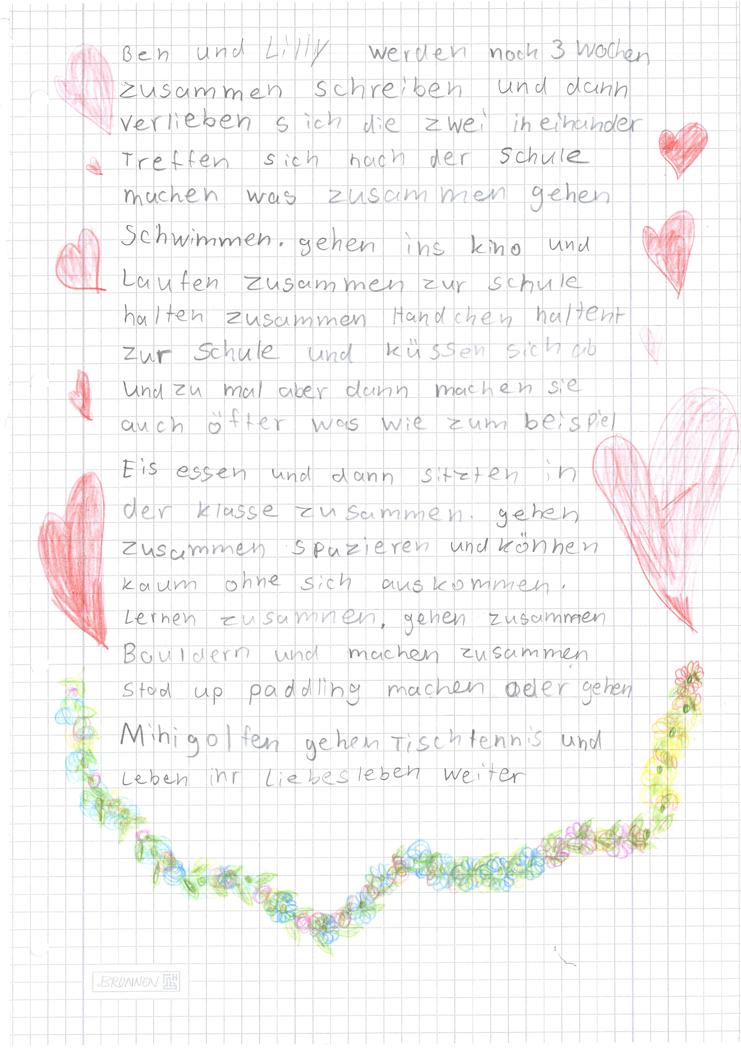 Ben und Lilly werden noch 3 Wochen
zusammen schreiben und dann
verlieben sich die zwei ineinander
Treffen sich nach der Schule
machen was zusammen gehen
Schwimmen. gehen ins kino und
Laufen zusammen zur schule
halten zusammen Handchen haltent
zur Schule und küssen sich ab
und zu mal aber dann machen sie
auch öfter was wie zum beispiel
Eis essen und dann sitzten in
der klasse zusammen. gehen
zusammen spazieren und können
kaum ohne sich auskommen.
Lernen zusamnen, gehen zusammen
Bouldern und machen zusammen
Stad up paddling machen oder gehen
Minigolfen gehen Tischtennis und
Leben ihr Liebesleben weiter
BRUNNEN